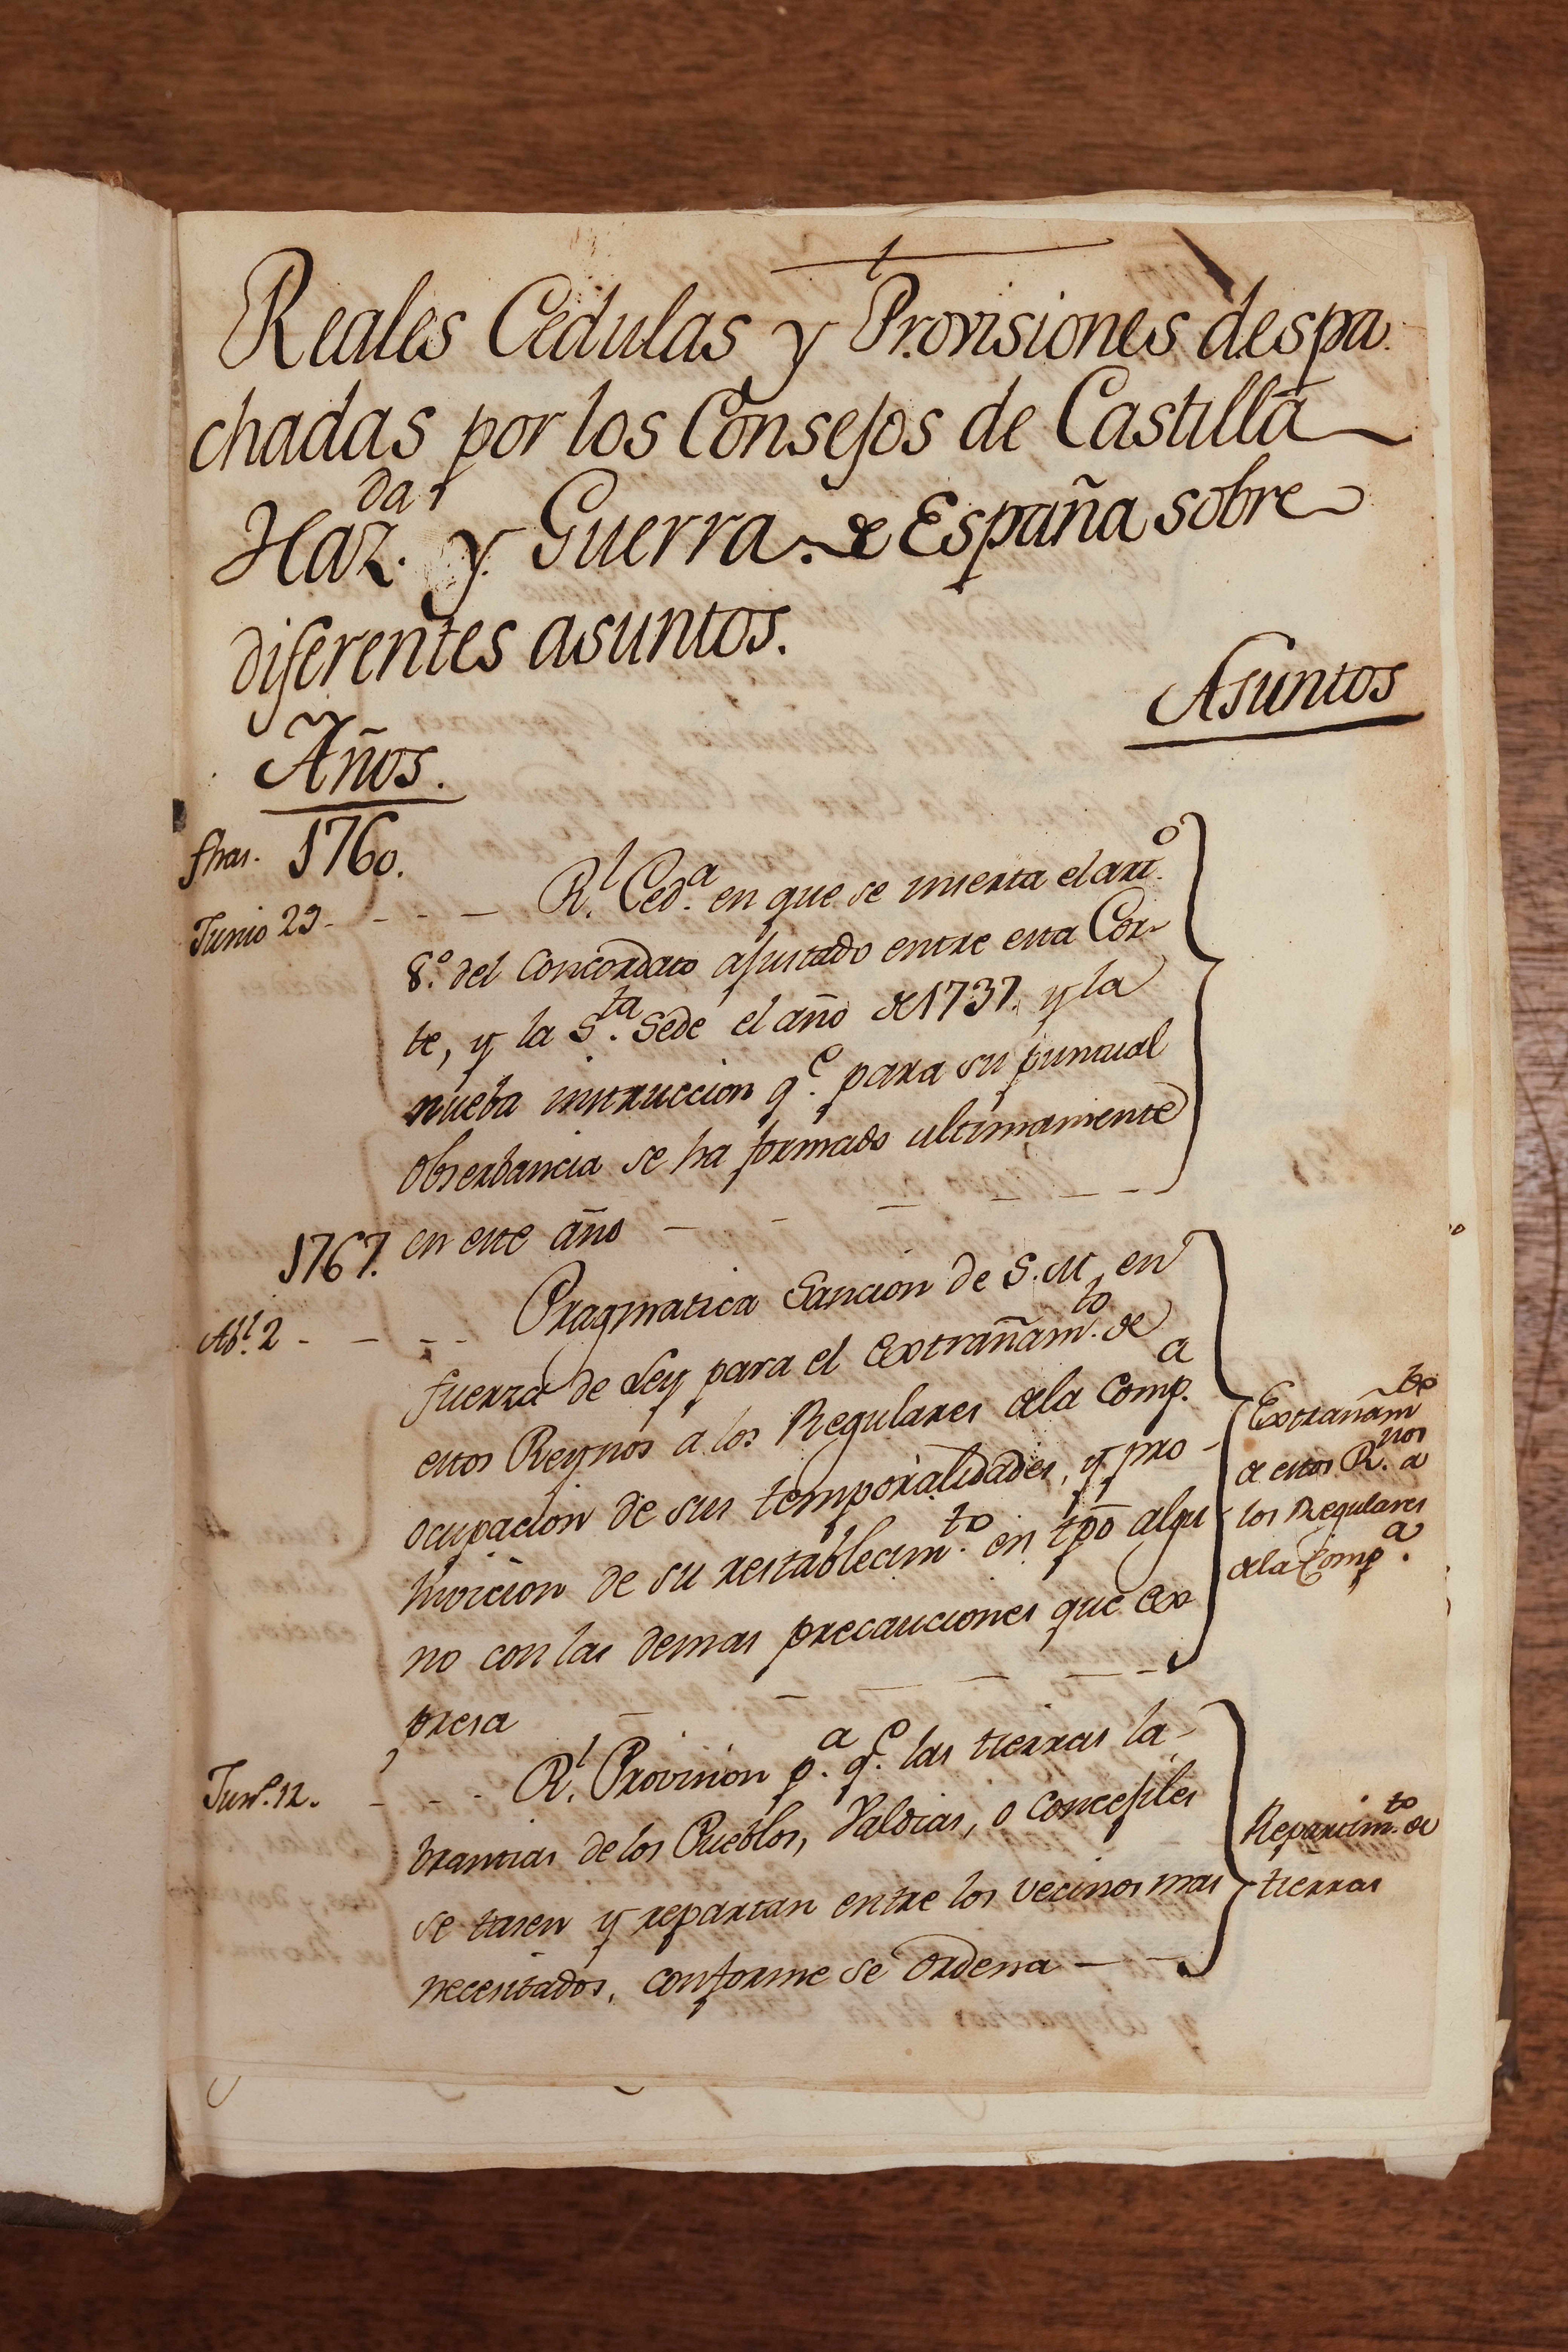 †
Reales Cedulas y Provisiones despa
chadas por los Consejos de Castilla
Haz.da y Guerra. de España sobre
diferentes asuntos.
Asuntos
Años.
fhas. 1760.
Junio 29 - - - - R.l Ced.a en que se inserta el art.o
8.o del Concordato ajustado entre esta Cor-
te, y la S.ta Sede el año de 1737. y la
nueba instruccion q.e para su puntual
obserbancia se ha formado ultimamente
en este año - - - - - -
1767.
Ab.l 2 - - - - Pragmatica Sancion de S.M. en
fuerza de Ley para el Extrañam.to de
estos Reynos a los Regulares de la Comp.a
ocupacion de sus temporalidades, y pro-
hivicion de su restablecim.to en tpō algu-
no con las demas precauciones que ex
presa - - - - -
Extrañam.to
de estos R.nos a
los Regulares
de la Comp.a
Jun.o 12. - - - R.l Provision p.a q.e las tierras la-
brantias de los Pueblos, Valdias, o concejiles
se tasen y repartan entre los vecinos mas
necesitados, conforme se ordena - -
Repartim.to de
tierras